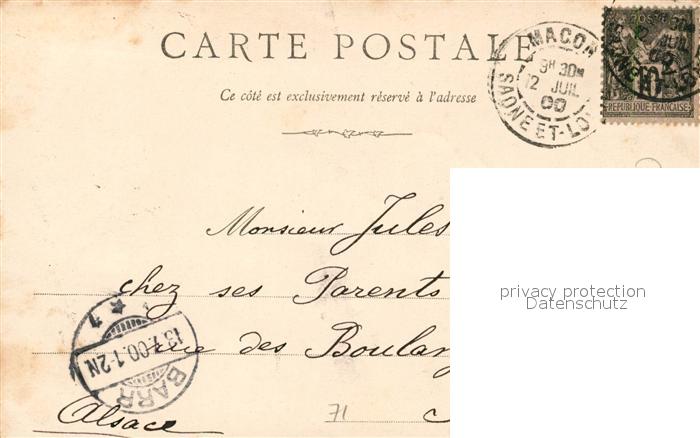 CARTE POSTALE
Ce côté est exclusivement réservé à l'adresse
MACON
9H 30M
12 JUIL
00
SAONE-ET-LOI
POSTES
10
REPUBLIQUE FRANÇAISE
Monsieur Jules
chez ses Parents
rue des Boulan
Alsace
BARR
13.7.00.1-2N
1
71
privacy protection
Datenschutz